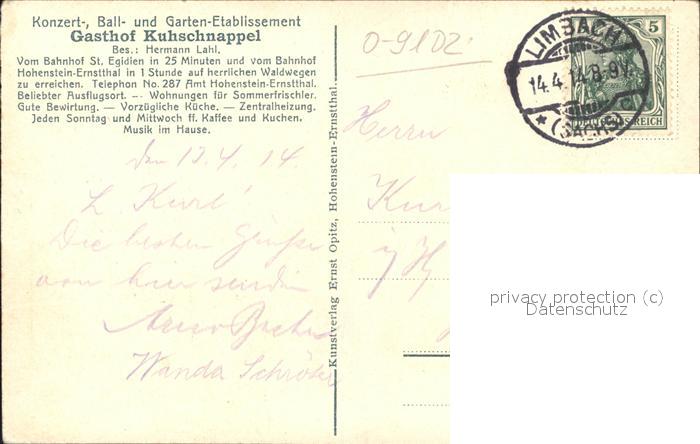 Konzert-, Ball- und Garten-Etablissement
Gasthof Kuhschnappel
Bes.: Hermann Lahl.
Vom Bahnhof St. Egidien in 25 Minuten und vom Bahnhof
Hohenstein-Ernstthal in 1 Stunde auf herrlichen Waldwegen
zu erreichen. Telephon No. 287 Amt Hohenstein-Ernstthal.
Beliebter Ausflugsort. -- Wohnungen für Sommerfrischler.
Gute Bewirtung. — Vorzügliche Küche. — Zentralheizung.
Jeden Sonntag und Mittwoch ff. Kaffee und Kuchen.
Musik im Hause.
den 13.4.14.
L. Kurt!
Die besten Grüße
von hier senden
Wanda Schröter
Kunstverlag Ernst Opitz, Hohenstein-Ernstthal.
0-9102
Herrn
Kur
LIMBACH
14.4.14.8-9V.
* (SACHS) c
5
DEUTSCHES REICH
privacy protection (c)
Datenschutz